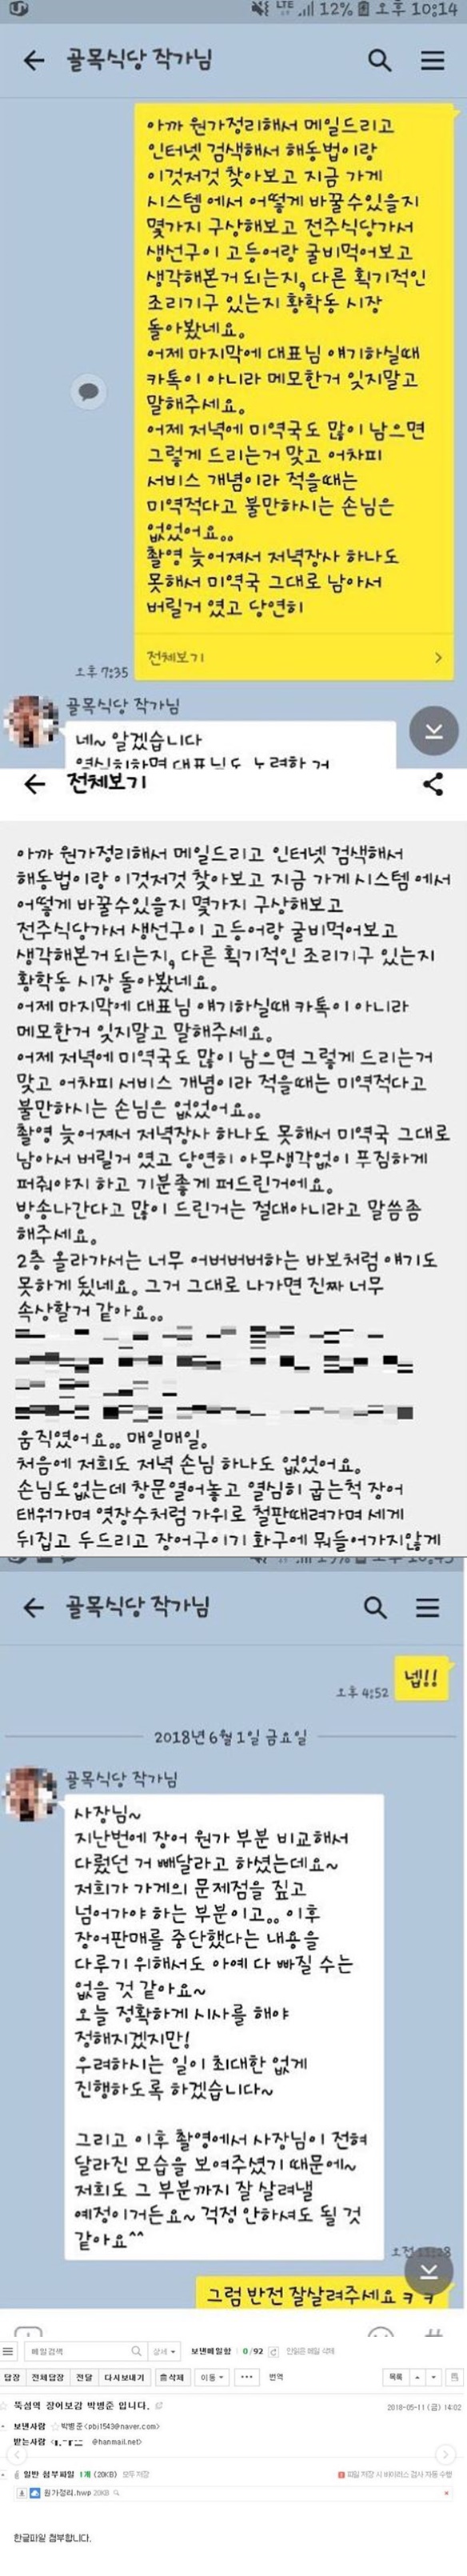 LTE 12% 오후 10:14
골목식당 작가님
아까 원가정리해서 메일드리고
인터넷 검색해서 해동법이랑
이것저것 찾아보고 지금 가게
시스템 에서 어떻게 바꿀수있을지
몇가지 구상해보고 전주식당가서
생선구이 고등어랑 굴비먹어보고
생각해본거 되는지, 다른 획기적인
조리기구 있는지 황학동 시장
돌아봤네요.
어제 마지막에 대표님 얘기하실때
카톡이 아니라 메모한거 잊지말고
말해주세요.
어제 저녁에 미역국도 많이 남으면
그렇게 드리는거 맞고 어차피
서비스 개념이라 적을때는
미역적다고 불만하시는 손님은
없었어요..
촬영 늦어져서 저녁장사 하나도
못해서 미역국 그대로 남아서
버릴거 였고 당연히
전체보기
오후 7:35
골목식당 작가님
네~ 알겠습니다
열심히하면 대표님도 노력한 거
전체보기
아까 원가정리해서 메일드리고 인터넷 검색해서
해동법이랑 이것저것 찾아보고 지금 가게 시스템 에서
어떻게 바꿀수있을지 몇가지 구상해보고
전주식당가서 생선구이 고등어랑 굴비먹어보고
생각해본거 되는지, 다른 획기적인 조리기구 있는지
황학동 시장 돌아봤네요.
어제 마지막에 대표님 얘기하실때 카톡이 아니라
메모한거 잊지말고 말해주세요.
어제 저녁에 미역국도 많이 남으면 그렇게 드리는거
맞고 어차피 서비스 개념이라 적을때는 미역적다고
불만하시는 손님은 없었어요..
촬영 늦어져서 저녁장사 하나도 못해서 미역국 그대로
남아서 버릴거 였고 당연히 아무생각없이 푸짐하게
퍼줘야지 하고 기분좋게 퍼드린거에요.
방송나간다고 많이 드린거는 절대아니라고 말씀좀
해주세요.
2층 올라가서는 너무 어버버버하는 바보처럼 얘기도
못하게 됬네요. 그거 그대로 나가면 진짜 너무
속상할거 같아요..
움직였어요.. 매일매일.
처음에 저희도 저녁 손님 하나도 없었어요.
손님도없는데 창문열어놓고 열심히 굽는척 장어
태워가며 엿장수처럼 가위로 철판때려가며 세게
뒤집고 두드리고 장어구이기 화구에 뭐들어가지않게
골목식당 작가님
넵!!
오후 4:52
2018년 6월 1일 금요일
골목식당 작가님
사장님~
지난번에 장어 원가 부분 비교해서
다뤘던 거 빼달라고 하셨는데요~
저희가 가게의 문제점을 짚고
넘어가야 하는 부분이고.. 이후
장어판매를 중단했다는 내용을
다루기 위해서도 아예 다 빠질 수는
없을 것 같아요~
오늘 정확하게 시사를 해야
정해지겠지만!
우려하시는 일이 최대한 없게
진행하도록 하겠습니다~
그리고 이후 촬영에서 사장님이 전혀
달라진 모습을 보여주셨기 때문에~
저희도 그 부분까지 잘 살려낼
예정이거든요~ 걱정 안하셔도 될 것
같아요^^
오전 11:28
그럼 반전 잘살려주세요 ㅋㅋ
메일검색 상세 보낸메일함 0/92 안읽은 메일 삭제
답장 전체답장 전달 다시보내기 삭제 이동 ··· 번역 목록
뚝섬역 장어보감 박병준 입니다. 2018-05-11 (금) 14:02
보낸사람 박병준<pbj1543@naver.com>
받는사람 @hanmail.net>
일반 첨부파일 1개 (20KB) 모두저장 파일 저장 시 바이러스 검사 자동 수행
원가정리.hwp 20KB
한글파일 첨부합니다.